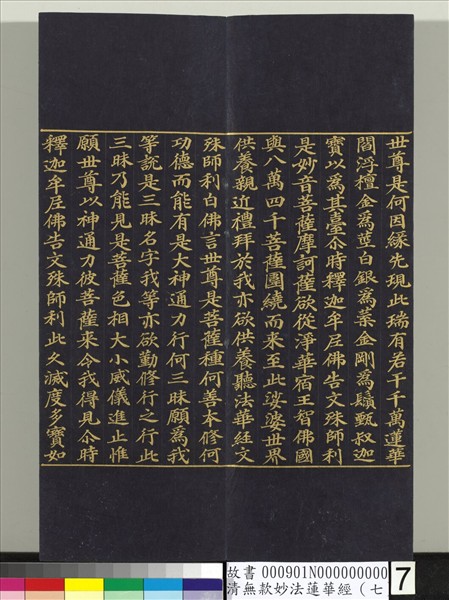 世尊是何因緣先現此瑞有若干千萬蓮華
閻浮檀金為莖白銀為葉金剛為鬚甄叔迦
寶以為其臺尒時釋迦牟尼佛告文殊師利
是妙音菩薩摩訶薩欲從淨華宿王智佛國
與八萬四千菩薩圍繞而來至此娑婆世界
供養親近禮拜於我亦欲供養聽法華經文
殊師利白佛言世尊是菩薩種何善本修何
功德而能有是大神通力行何三昧願為我
等說是三昧名字我等亦欲勤修行之行此
三昧乃能見是菩薩色相大小威儀進止惟
願世尊以神通力彼菩薩來令我得見尒時
釋迦牟尼佛告文殊師利此久滅度多寶如
故書 000901N000000000
清無款妙法蓮華經（七
7